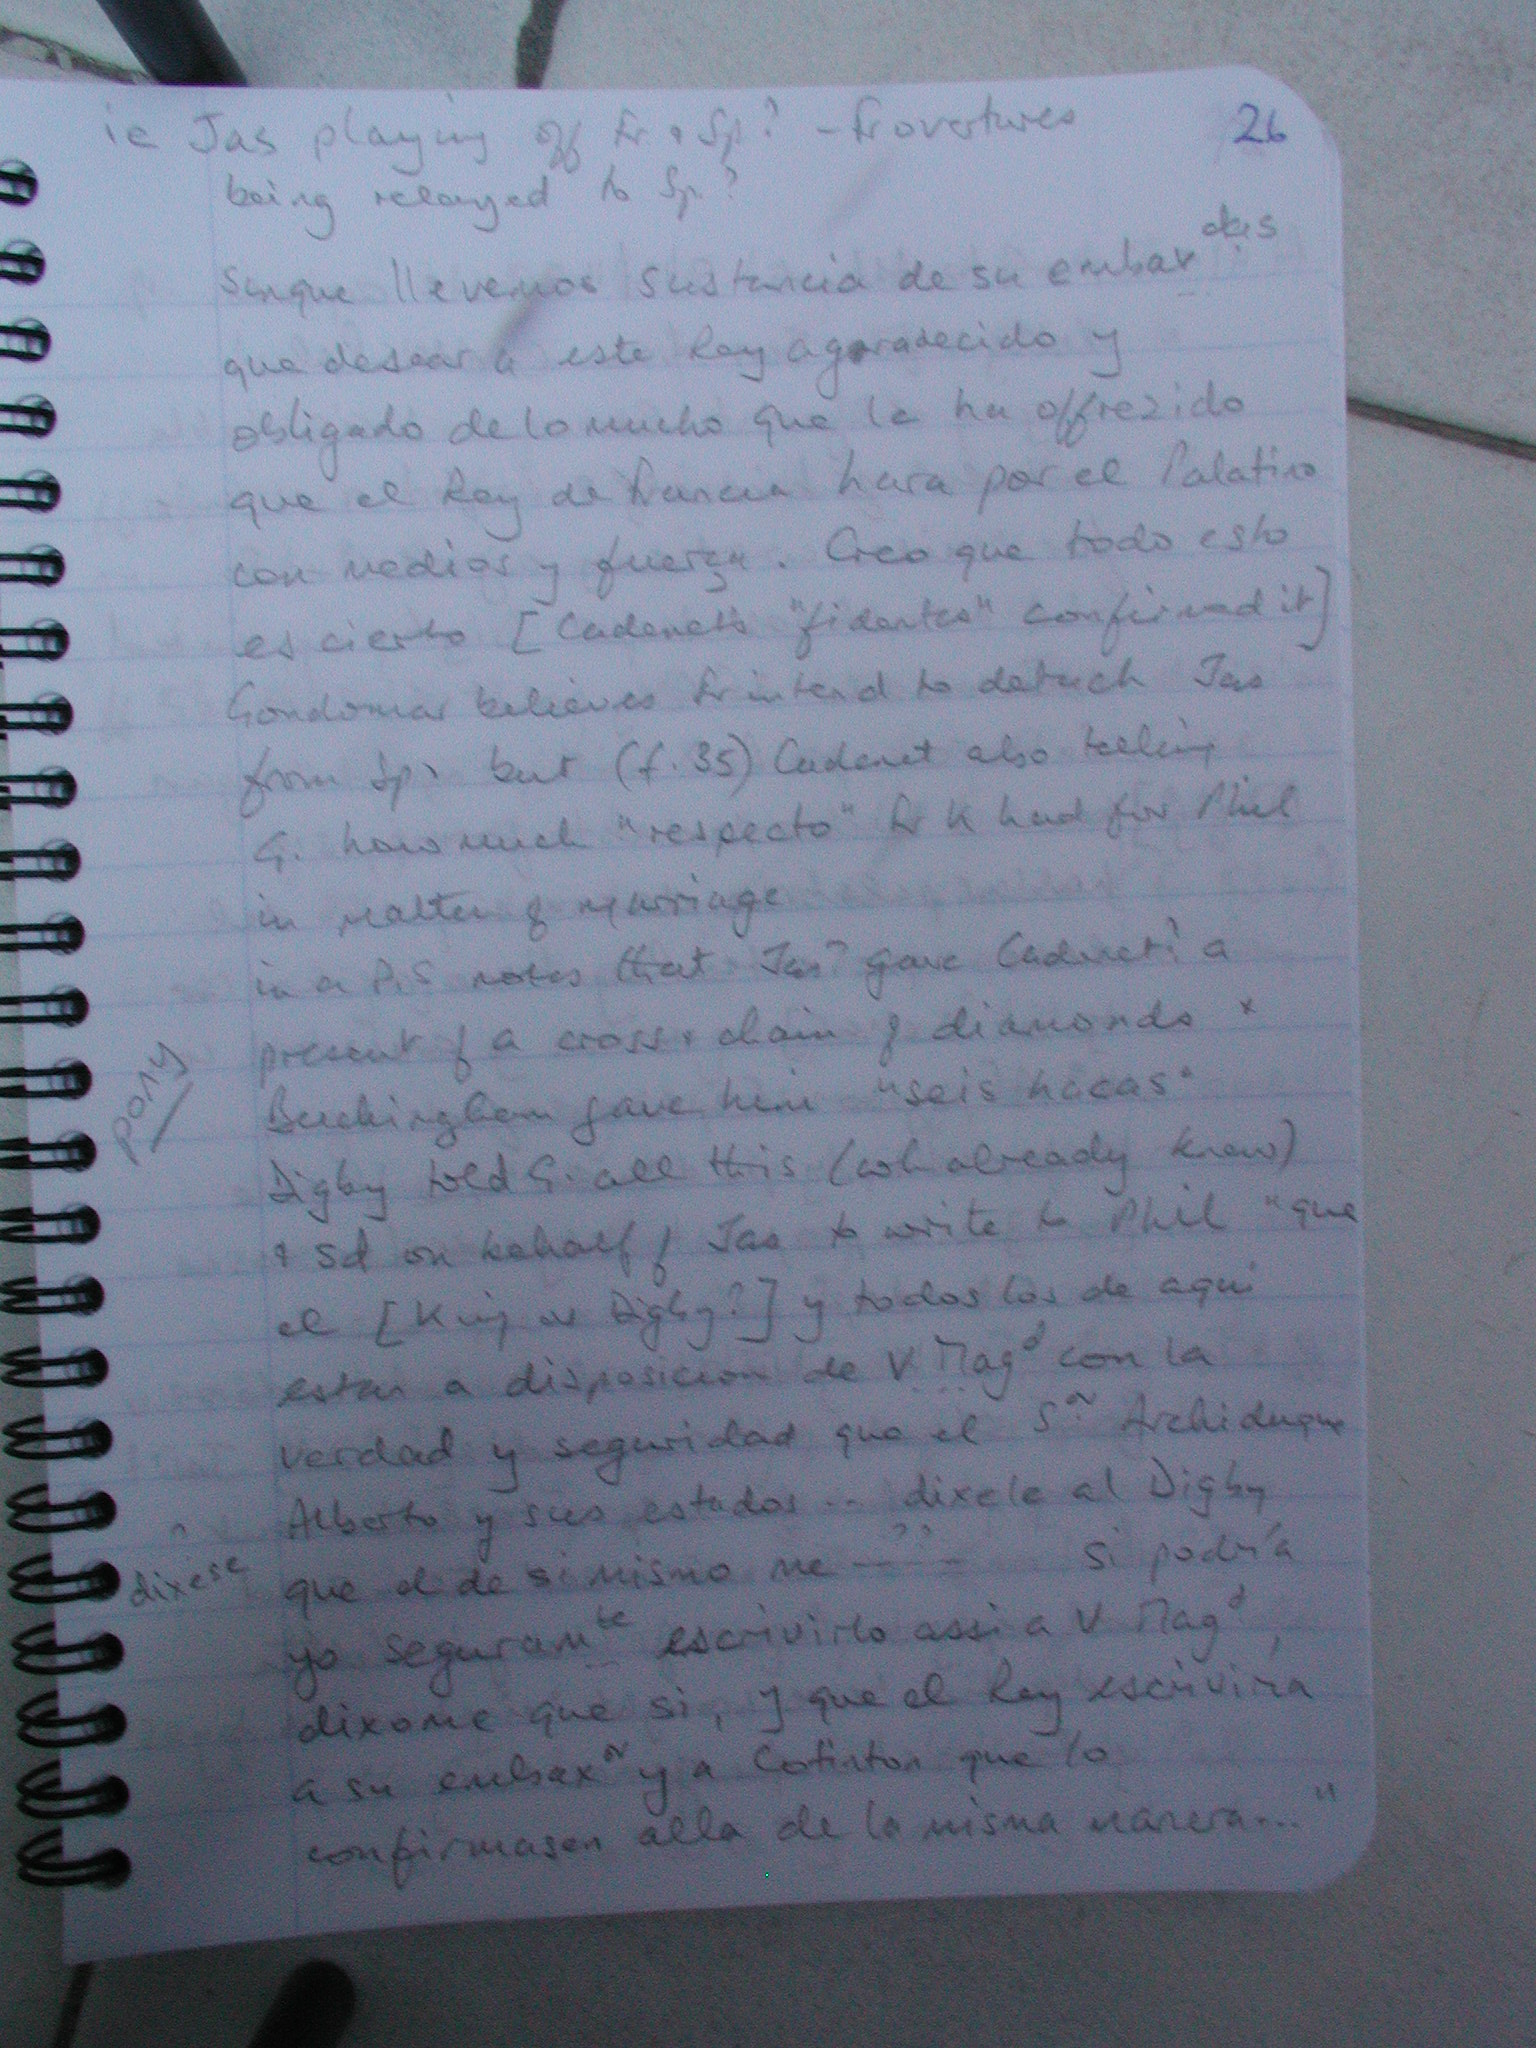 26
ie Jas playing off Fr. & Sp? - Fr overtures
being relayed to Sp.?
Sinque llevemos sustancia de su embax adas
que desear a este Rey agradecido y
obligado de lo mucho que le ha offrezido
que el Rey de Francia hara por el Palatino
con medios y fuerça. Creo que todo esto
es cierto [Cadenet's "fidentes" confirmed it]
Gondomar believes Fr intend to detach Jas
from Sp. but (f. 35) Cadenet also telling
G. how much "respecto" Fr K had for Phil
in matter of marriage
in a P.S notes that Jas? gave Cadenet a
present of a cross & chain of diamonds &
Buckingham gave him "seis hacas"
pony
Digby told G. all this (wh already knew)
& sd on behalf of Jas to write to Phil "que
el [King or Digby?] y todos los de aqui
estan a disposicion de V. Magd con la
verdad y seguridad que el Sor Archiduque
Alberto y sus estados .. dixele al Digby
dixese
que el de si mismo me ?? si podría
yo seguramte escrivirlo assi a V Magd,
dixome que si, y que el Rey escriviria
a su embaxor y a Cotinton que lo
confirmasen alla de la misma manera..."